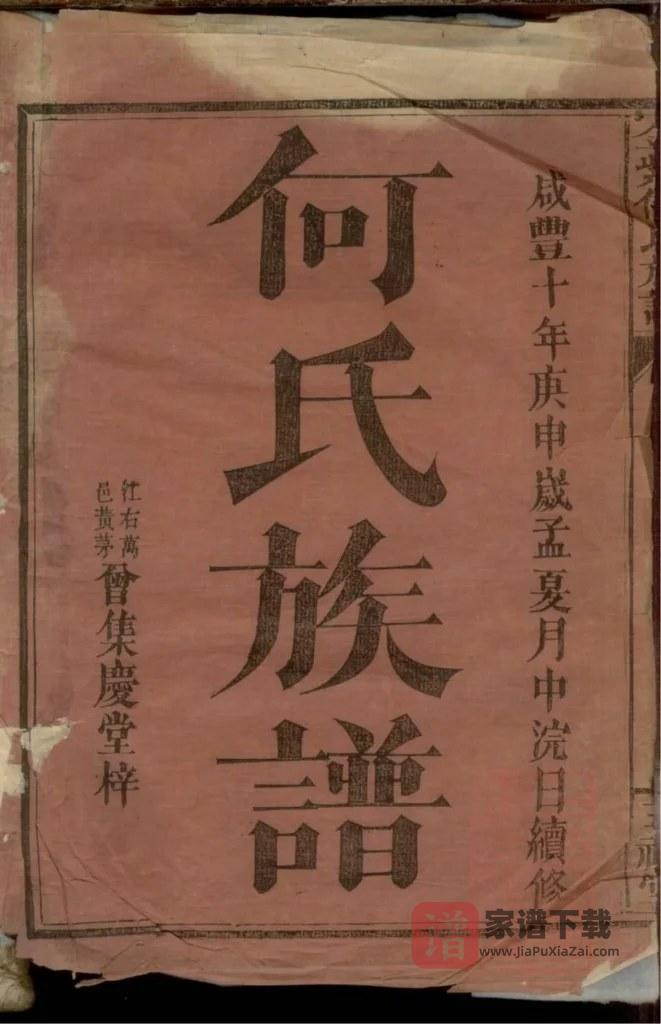 咸豐十年庚申歲孟夏月中浣日續修
何氏族譜
江右萬
邑黄茅
曾集慶堂梓
何氏族譜
谱
家谱下载
www.JiaPuXiaZai.com